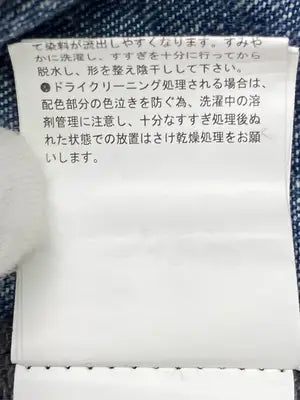 て染料が流出しやすくなります。すみや
かに洗濯し、すすぎを十分に行ってから
脱水し、形を整え陰干しして下さい。
●ドライクリーニング処理される場合は、
配色部分の色泣きを防ぐ為、洗濯中の溶
剤管理に注意し、十分なすすぎ処理後ぬ
れた状態での放置はさけ乾燥処理をお願
いします。